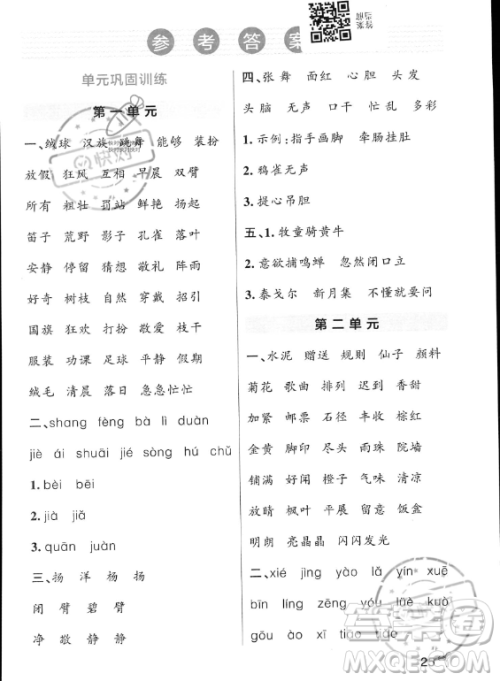 参考答案
单元巩固训练
第一单元
一、绒球 汉族 跳舞 能够 装扮
放假 狂风 互相 早晨 双臂
所有 粗壮 罚站 鲜艳 扬起
笛子 荒野 影子 孔雀 落叶
安静 停留 猜想 敬礼 阵雨
好奇 树枝 自然 穿戴 招引
国旗 狂欢 打扮 敬爱 枝干
服装 功课 足球 平静 假期
绒毛 清晨 落日 急急忙忙
二、shang fèng bà lì duàn
jiè ái shuāi jié sòng hú chǔ
1. bèi bēi
2. jià jiǎ
3. quān juàn
三、扬 洋 杨 扬
闭 臂 碧 臂
净 敬 静 静
四、张 舞 面红 心 胆 头 发
头 脑 无 声 口 干 忙 乱 多 彩
1. 示例:指手画脚 牵肠挂肚
2. 鸦雀无声
3. 提心吊胆
五、1. 牧童骑黄牛
2. 意欲捕鸣蝉 忽然闭口立
3. 泰戈尔 新月集 不懂就要问
第二单元
一、水泥 赠送 规则 仙子 颜料
菊花 歌曲 排列 迟到 香甜
加紧 邮票 石径 丰收 棕红
金黄 脚印 尽头 雨珠 院墙
铺满 好闻 橙子 气味 清凉
放晴 枫叶 平展 留意 饭盒
明朗 亮晶晶 闪闪发光
二、xié jìng yào lǎ yín xuě
bīn líng zēng yóu lüè kuò
gōu ào
23
MKQGE.COM